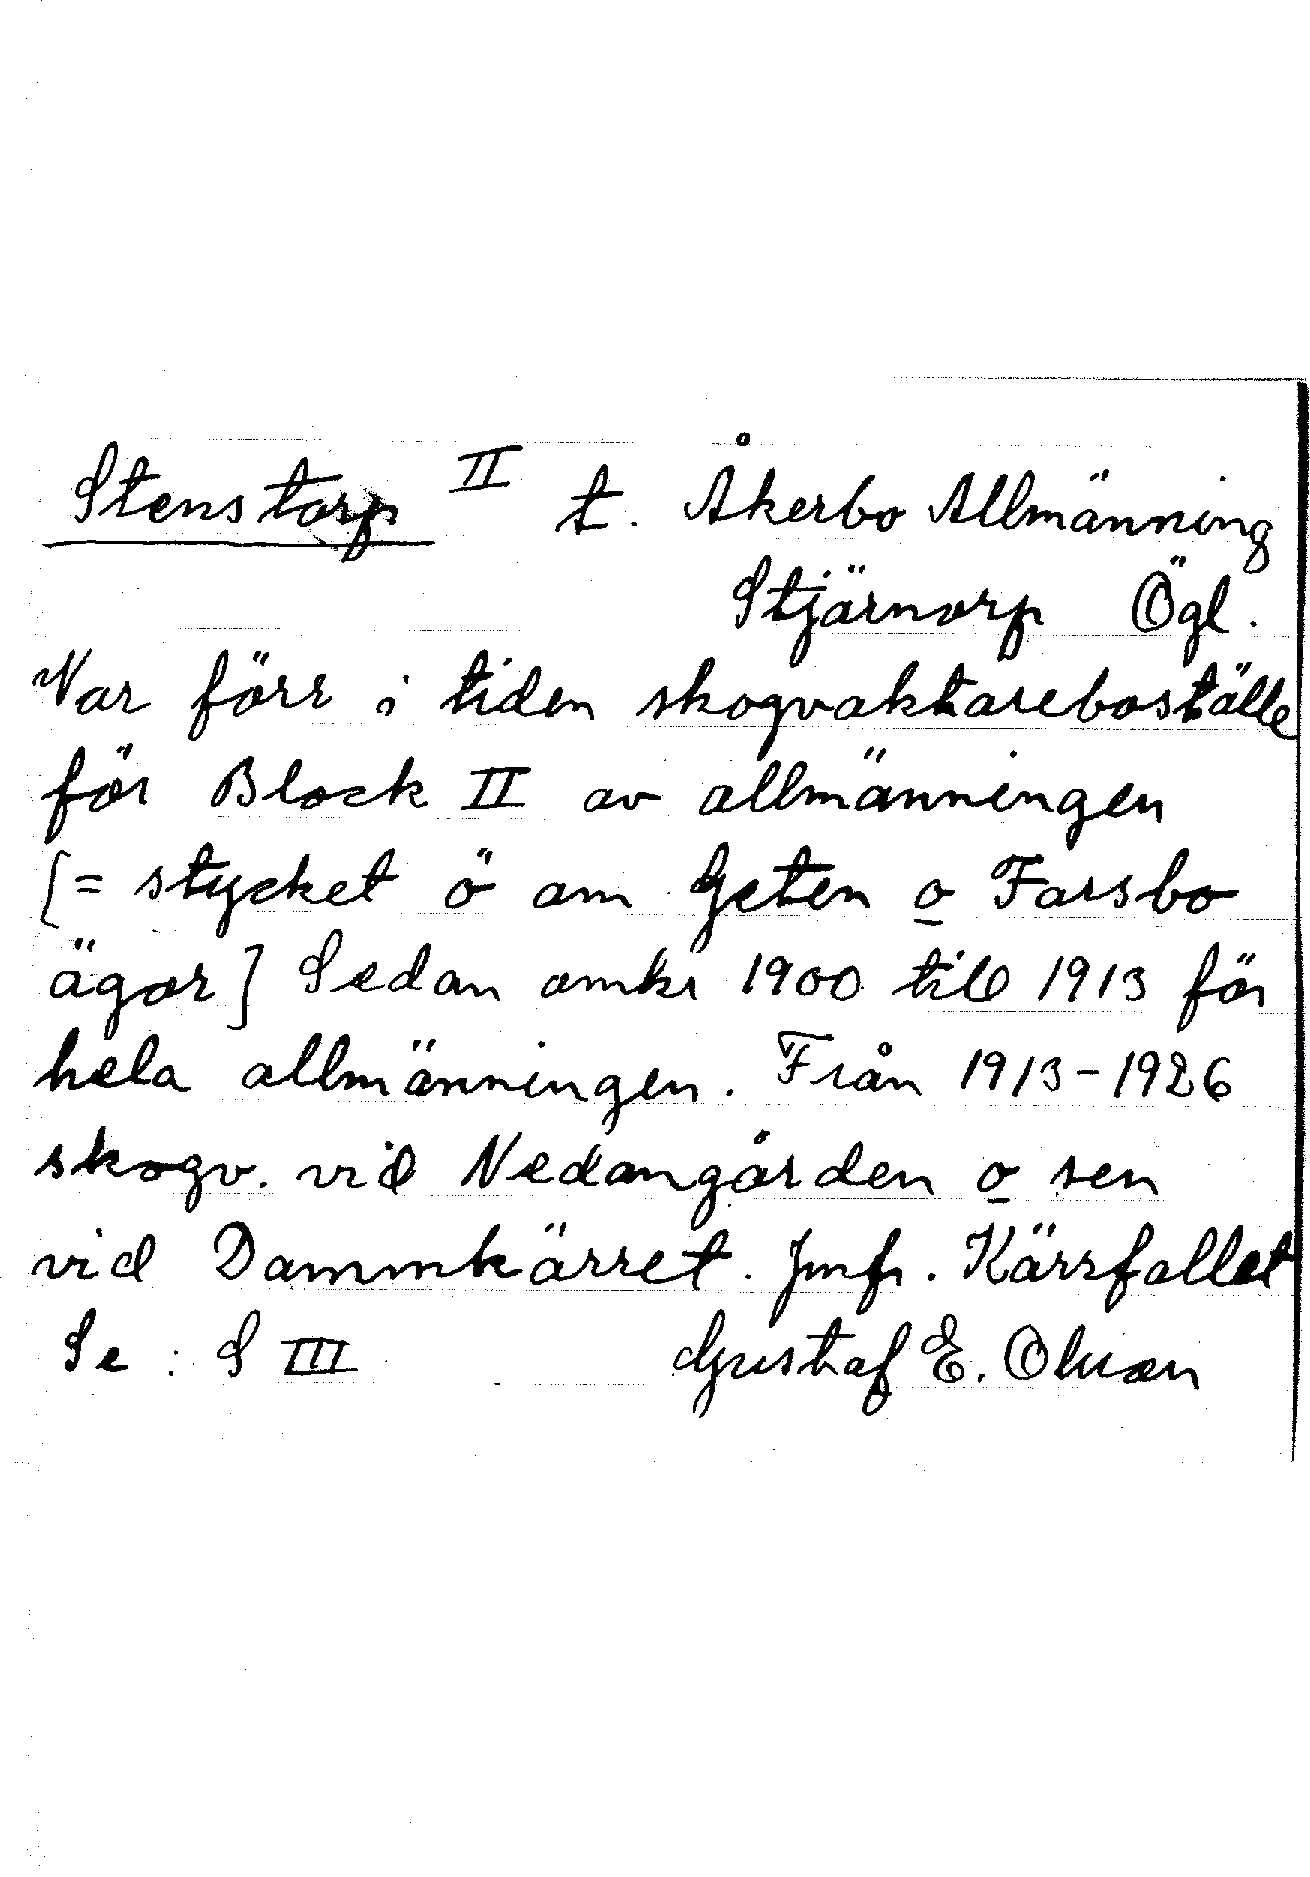 Stenstorp II t. Åkerbo Allmänning
Stjärnorp Ögl.
Var förr i tiden skogvaktareboställe
för Block II av allmänningen
[= stycket ö om Geten o Farsbo
ägor] Sedan omkr 1900 till 1913 för
hela allmänningen. Från 1913-1926
skogv. vid Nedangården o sen
vid Dammkärret. Jmfr. Kärrfallet
Se: S III Gustaf E. Olsson